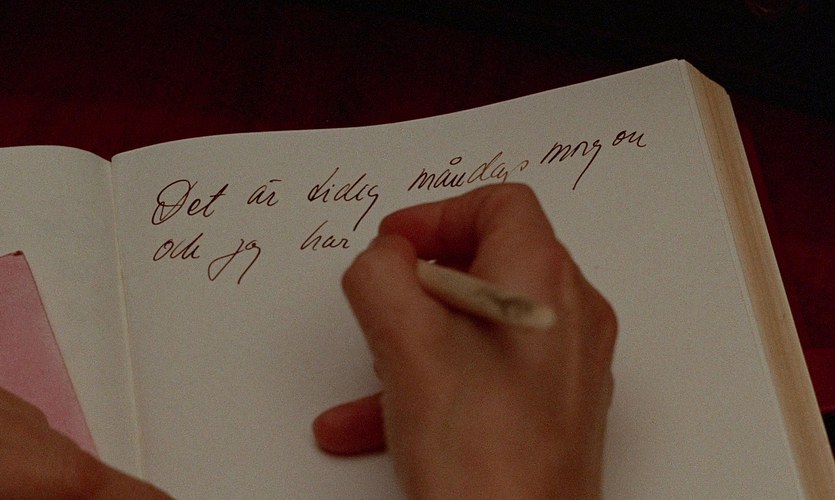 Det är tidig måndags morgon
och jag har